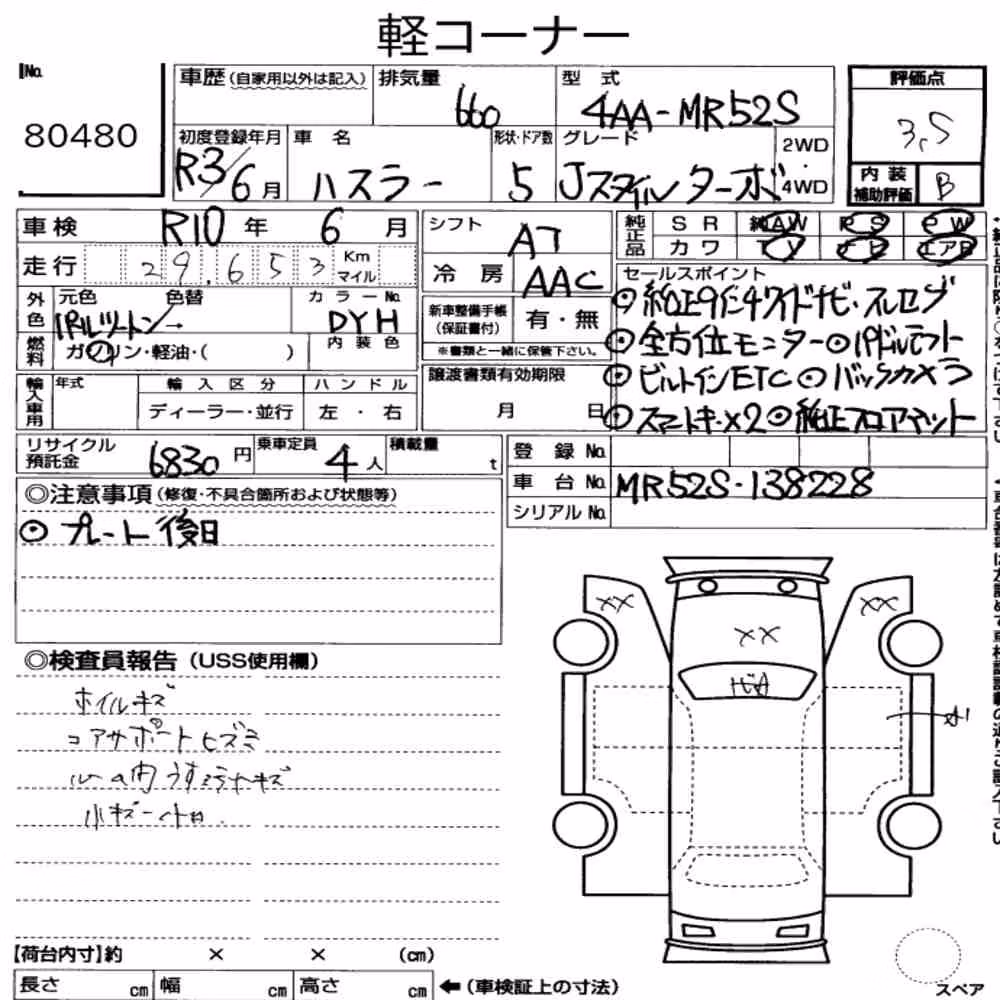 軽コーナー
No.
80480
車歴 (自家用以外は記入)
排気量
660
型式
4AA-MR52S
評価点
3.5
初度登録年月
R3/6月
車名
ハスラー
形状・ドア数
5
グレード
Jスタイル ターボ
2WD
・
4WD
内装
補助評価
B
車検
R10年 6月
シフト
AT
純正品
SR 純AW PS PW
カワ TV ナビ エアB
走行
29,653
Km
マイル
冷房
AAC
セールスポイント
⊙純正9インチワイドナビ・フルセグ
⊙全方位モニター⊙パドルシフト
⊙ビルトインETC⊙バックカメラ
⊙スマートキー×2⊙純正フロアマット
外色
元色 色替
パールツートン→
カラーNo.
DYH
新車整備手帳
(保証書付)
有・無
※書類と一緒に保管下さい。
燃料
ガソリン・軽油・( )
内装色
譲渡書類有効期限
月 日
輸入車用
年式
輸入区分
ハンドル
ディーラー・並行
左・右
リサイクル
預託金
6830円
乗車定員
4人
積載量
t
登録No.
車台No.
MR52S-138228
シリアルNo.
◎注意事項 (修復・不具合箇所および状態等)
⊙プレート後日
◎検査員報告 (USS使用欄)
ホイルキズ
コアサポートヒズミ
ルーム内うすヨゴレキズ
小キズ
XX
XX
XX
【荷台内寸】約 × × (cm)
長さ cm
幅 cm
高さ cm
←(車検証上の寸法)
スペア